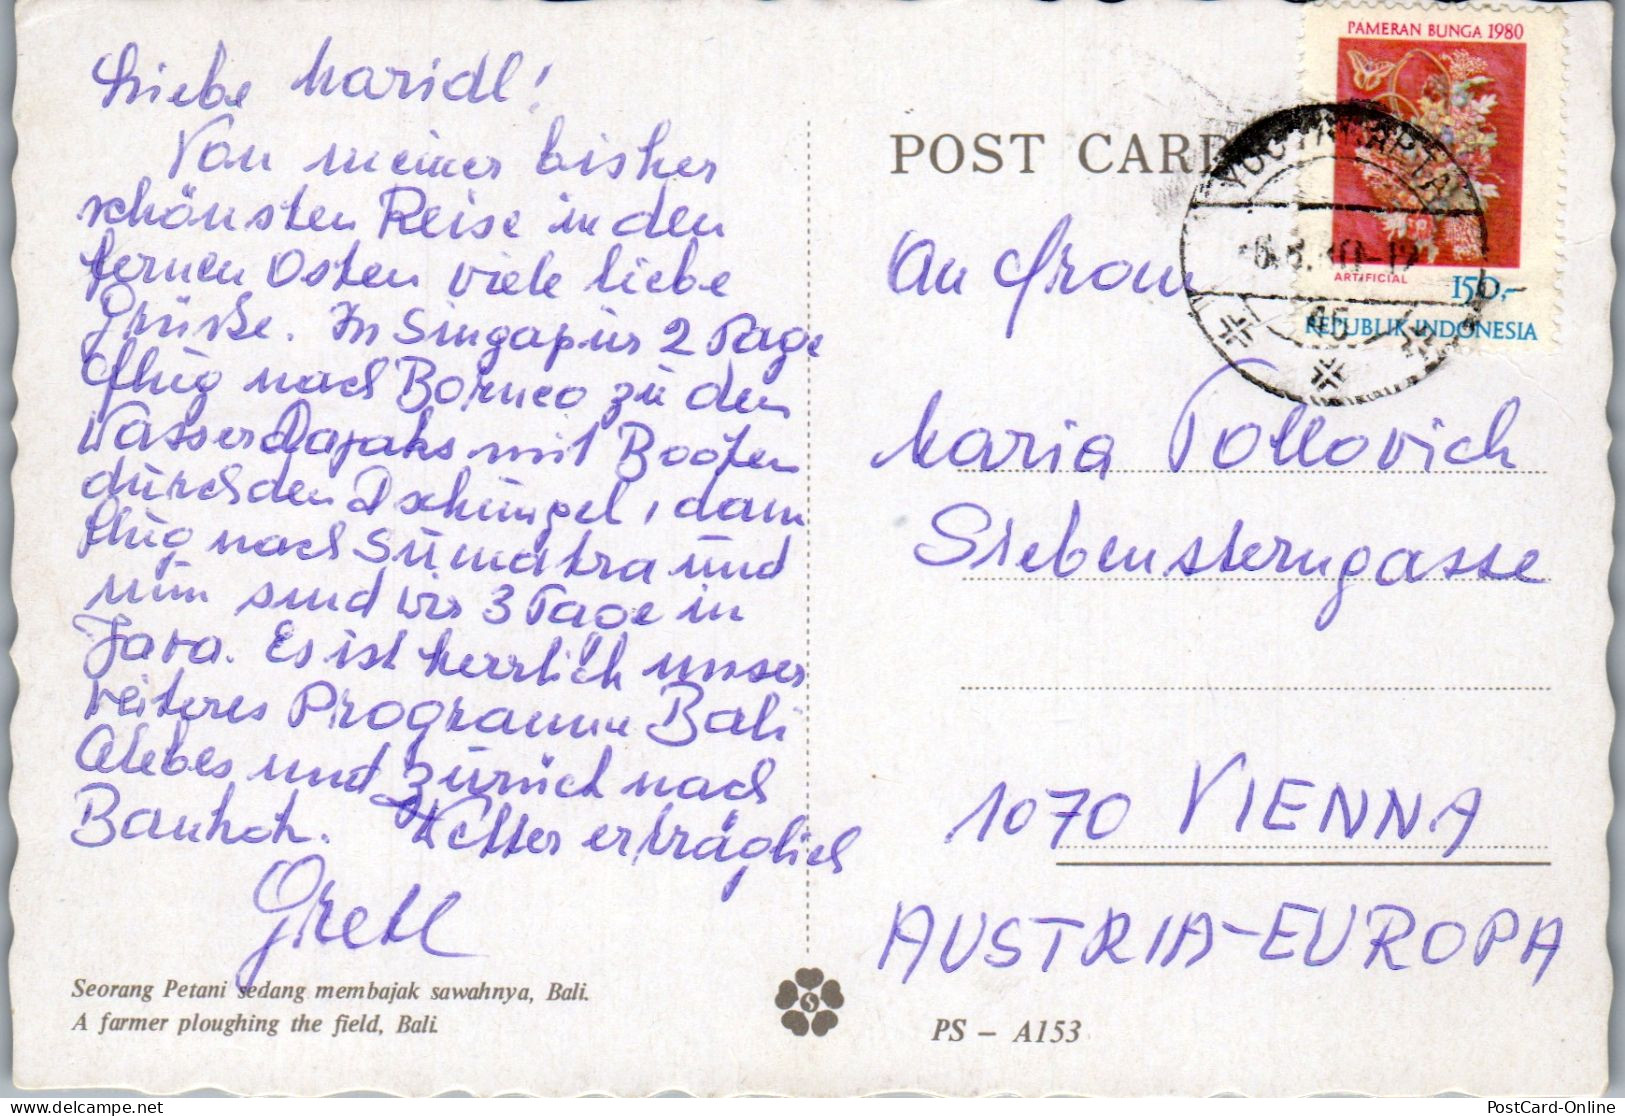 Liebe Maridl!
Von meiner bisher
schönsten Reise in den
fernen Osten viele liebe
Grüße. In Singapur 2 Tage
Flug nach Borneo zu den
Wasser Dajaks mit Booten
durch den Dschungel, dann
Flug nach Sumatra und
nun sind wir 3 Tage in
Java. Es ist herrlich unser
weiteres Programm Bali
Celebes und zurück nach
Bankok. Wetter erträglich
Gretl
Seorang Petani sedang membajak sawahnya, Bali.
A farmer ploughing the field, Bali.
POST CARD
PAMERAN BUNGA 1980
ARTIFICIAL
150,-
REPUBLIK INDONESIA
YOGYAKARTA
An Frau
Maria Pollovich
Siebensterngasse
1070 VIENNA
AUSTRIA-EUROPA
PS - A153
PostCard-Online
delcampe.net